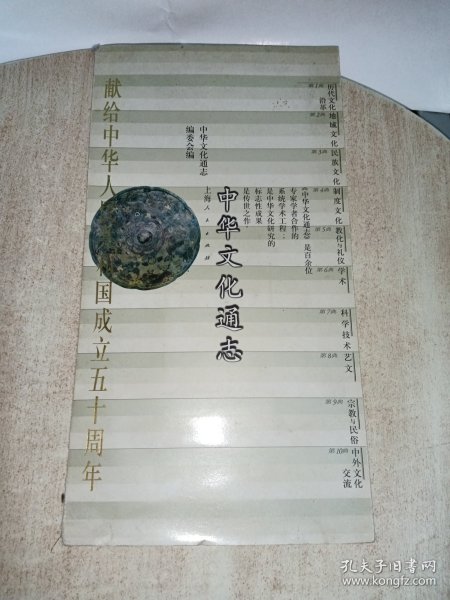 第1典
历代文化
沿革
第2典
地域文化
第3典
民族文化
第4典
制度文化
第5典
教化与礼仪
第6典
学术
第7典
科学技术
第8典
艺文
第9典
宗教与民俗
第10典
中外文化
交流
《中华文化通志》是百余位
专家学者合作的
系统学术工程；
是中华文化研究的
标志性成果
是传世之作
中华文化通志
中华文化通志
编委会编
上海人民出版社
献给中华人
国成立五十周年
孔夫子旧书网
www.kongfz.com